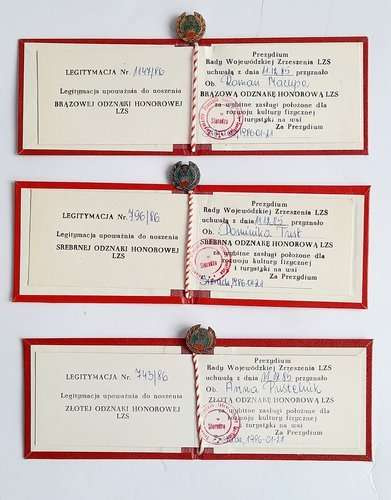 LEGITYMACJA Nr. 1144/86
Legitymacja upoważnia do noszenia
BRĄZOWEJ ODZNAKI HONOROWEJ
LZS
Prezydium
Rady Wojewódzkiej Zrzeszenia LZS
uchwałą z dnia 11.12.85 przyznało
Ob. Roman
BRĄZOWĄ ODZNAKĘ HONOROWĄ LZS
za wybitne zasługi położone dla
rozwoju kultury fizycznej
i turystyki na wsi
Za Prezydium
Sieradz
1986-01-21
LEGITYMACJA Nr. 796/86
Legitymacja upoważnia do noszenia
SREBRNEJ ODZNAKI HONOROWEJ
LZS
Prezydium
Rady Wojewódzkiej Zrzeszenia LZS
uchwałą z dnia 11.12.85 przyznało
Ob. Dominika Trust
SREBRNĄ ODZNAKĘ HONOROWĄ LZS
za wybitne zasługi położone dla
rozwoju kultury fizycznej
i turystyki na wsi
Za Prezydium
Sieradz
Sieradz 1986-01-21
LEGITYMACJA Nr. 743/86
Legitymacja upoważnia do noszenia
ZŁOTEJ ODZNAKI HONOROWEJ
LZS
Prezydium
Rady Wojewódzkiej Zrzeszenia LZS
uchwałą z dnia 11.12.85 przyznało
Ob. Anna Pustelnik
ZŁOTĄ ODZNAKĘ HONOROWĄ LZS
za wybitne zasługi położone dla
rozwoju kultury fizycznej
i turystyki na wsi
Za Prezydium
Sieradz
1986-01-21